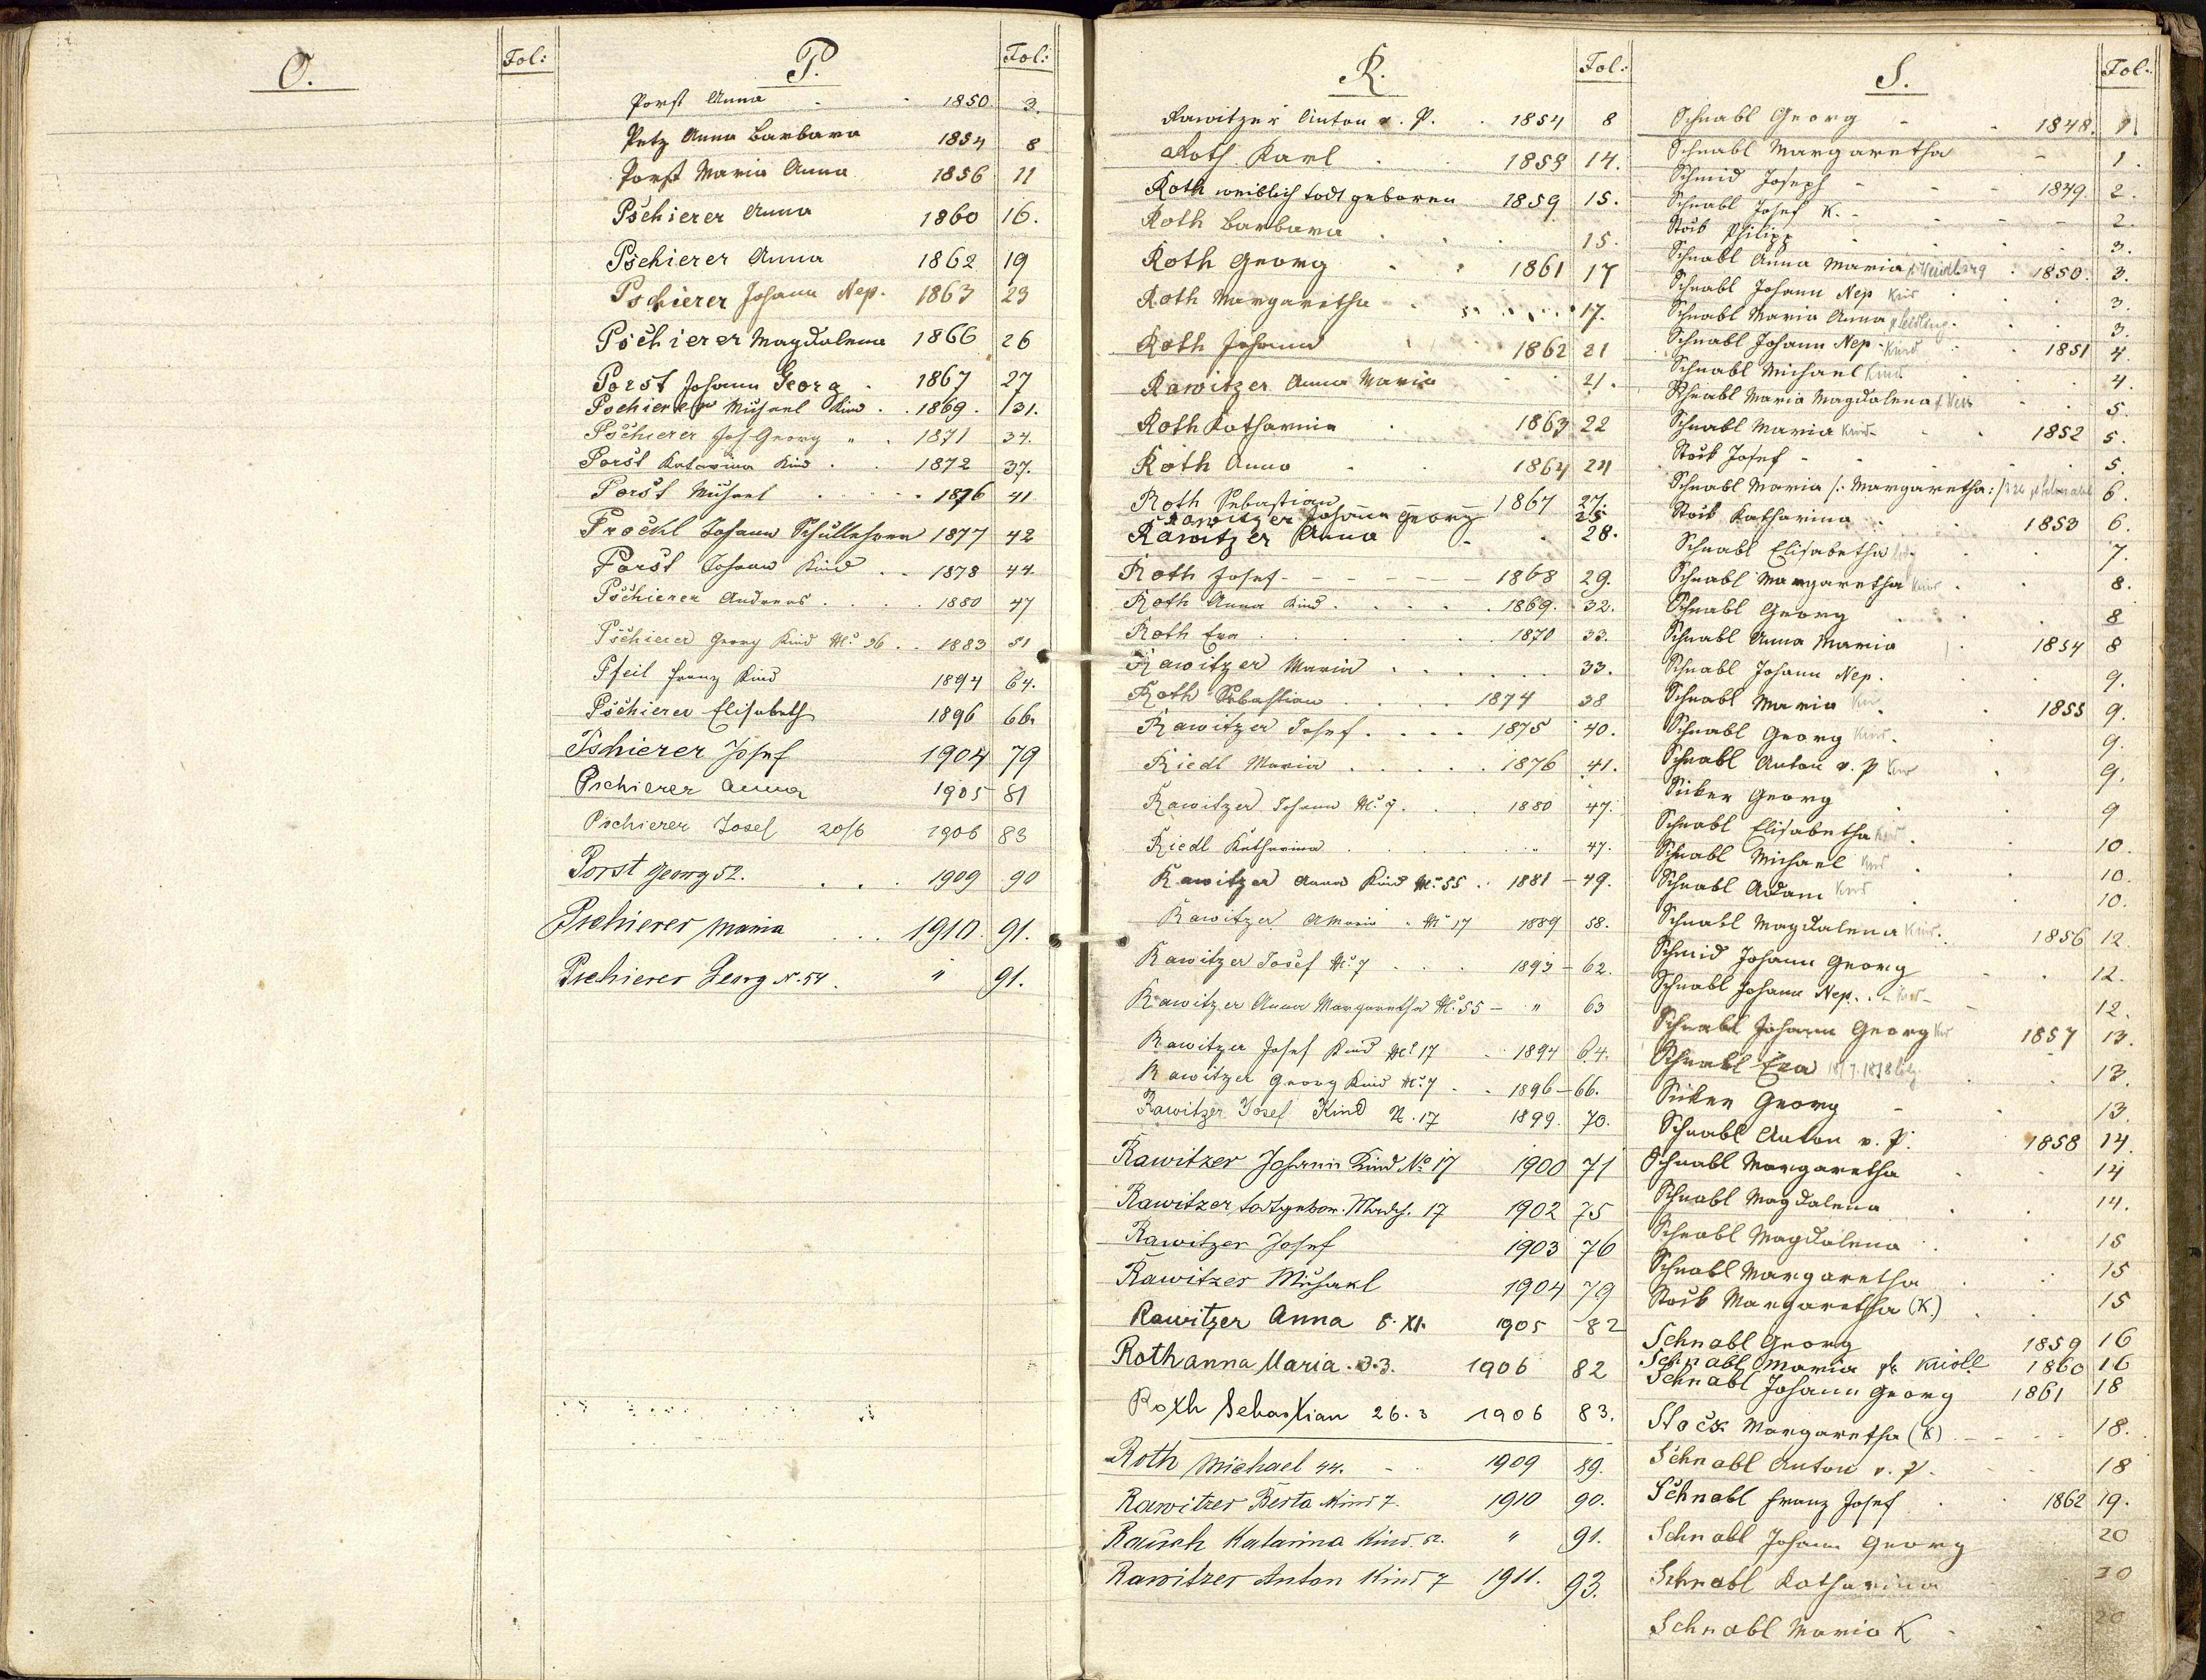 O.
Fol:
P.
Fol:
Porst Anna - - 1850 3.
Petz Anna Barbara 1854 8
Porst Maria Anna 1856 11
Pschierer Anna 1860 16.
Pschierer Anna 1862 19
Pschierer Johann Nep. 1863 23
Pschierer Magdalena 1866 26
Porst Johann Georg . 1867 27
Pschierer Michael Kind . . 1869. 31.
Pschierer Joh Georg " . 1871 34.
Porst Katarina Kind . . 1872 37.
Porst Michael . . . . 1876 41
Prockl Johann 1877 42
Porst Johann Kind . . 1878 44.
Pschierer Andreas . . . . 1880 47
Pschierer Georg Kind No. 36 . . 1883 51
Pfeil Franz Kind 1894 64.
Pschierer Elisabeth 1896 66.
Pschierer Josef 1904 79
Pschierer Anna 1905 81
Pschierer Josef 20/6 1906 83
Porst Georg 52. . . . 1909 90
Pschierer Maria . . . 1910. 91.
Pschierer Georg N. 54. " 91.
R.
Fol:
Rawitzer Anton v. P. . 1854 8
Roth Karl . . 1858 14.
Roth weiblich todt geboren 1859 15.
Roth Barbara . . . 15.
Roth Georg . . 1861 17
Roth Margaretha . . . 17.
Roth Johann 1862 21
Rawitzer Anna Maria . . 21.
Roth Katharina . 1863 22
Roth Anna . . 1864 24
Roth Sebastian 1867 27.
Rawitzer Johann Georg 25.
Rawitzer Anna - . 28.
Roth Josef - - - - - - 1868 29.
Roth Anna Kind . . . . . 1869. 32.
Roth Eva . . . . . . 1870 33.
Rawitzer Maria . . . . . . 33.
Roth Sebastian . . . . 1874 38
Rawitzer Josef . . . . 1875 40.
Riedl Maria . . . . . 1876 41.
Rawitzer Johann No. 7. . . 1880 47.
Riedl Katharina . . . . . " 47.
Rawitzer Anna Kind No. 55 . . 1881 - 49.
Rawitzer A Maria " No 17 1889 58.
Rawitzer Josef No. 7 . . . 1893 - 62.
Rawitzer Anna Margaretha No. 55 - " 63
Rawitzer Josef Kind No. 17 . 1894 64.
Rawitzer Georg Kind No. 7 . . 1896 - 66.
Rawitzer Josef Kind N. 17 1899. 70.
Rawitzer Johann Kind No 17 1900 71
Rawitzer todtgebor. Mädch. 17 1902 75
Rawitzer Josef 1903 76
Rawitzer Michael 1904 79
Rawitzer Anna 8. XI. 1905 82
Roth Anna Maria . 3.3. 1906 82
Roth Sebastian 26. 3 1906 83.
Roth Michael 44. - 1909 89.
Rawitzer Berta Kind 7. 1910 90.
Rausch Katarina Kind. " 91.
Rawitzer Anton Kind 7 1911. 93.
S.
Fol:
Schnabl Georg - . 1848. 1
Schnabl Margaretha - 1.
Schmid Joseph - - - 1849. 2.
Schnabl Josef K. - - - - 2.
Stöck Philipp . . . . 3.
Schnabl Anna Maria . 1850. 3.
Schnabl Johann Nep Kind . . 3.
Schnabl Maria Anna . . 3.
Schnabl Johann Nep - Kind . . 1851 4.
Schnabl Michael Kind . . 4.
Schnabl Maria Magdalena . . 5.
Schnabl Maria Kind - . 1852 5.
Stöck Josef - . . . 5.
Schnabl Maria /: Margaretha :/ 6.
Stöck Katharina . . . 1853 6.
Schnabl Elisabetha . . 7.
Schnabl Margaretha Kind . . 8.
Schnabl Georg . . . 8
Schnabl Anna Maria . 1854 8
Schnabl Johann Nep. . . 9.
Schnabl Maria . 1855 9.
Schnabl Georg Kind . . 9.
Schnabl Anton v. P Kind . 9.
Georg . . 9
Schnabl Elisabetha Kind . . 10.
Schnabl Michael Kind . . 10.
Schnabl Adam Kind . . 10.
Schnabl Magdalena Kind. 1856 12
Schmid Johann Georg . . 12.
Schnabl Johann Nep. . - Kind - - 12.
Schnabl Johann Georg 1857 13.
Schnabl Eva . . 13.
Georg - . 13.
Schnabl Anton v. P. 1858 14.
Schnabl Margaretha . . 14
Schnabl Magdalena . . 14.
Schnabl Magdalena . . 15
Schnabl Margaretha . . 15
Stöck Margaretha (K.) . . 15
Schnabl Georg 1859 16
Schnabl Maria 1860 16
Schnabl Johann Georg 1861 18
Stöck Margaretha (K) - - - - 18.
Schnabl Anton v. P. - - 18
Schnabl Franz Josef . . 1862 19.
Schnabl Johann Georg 20
Schnabl Katharina 20
Schnabl Maria K - . 20